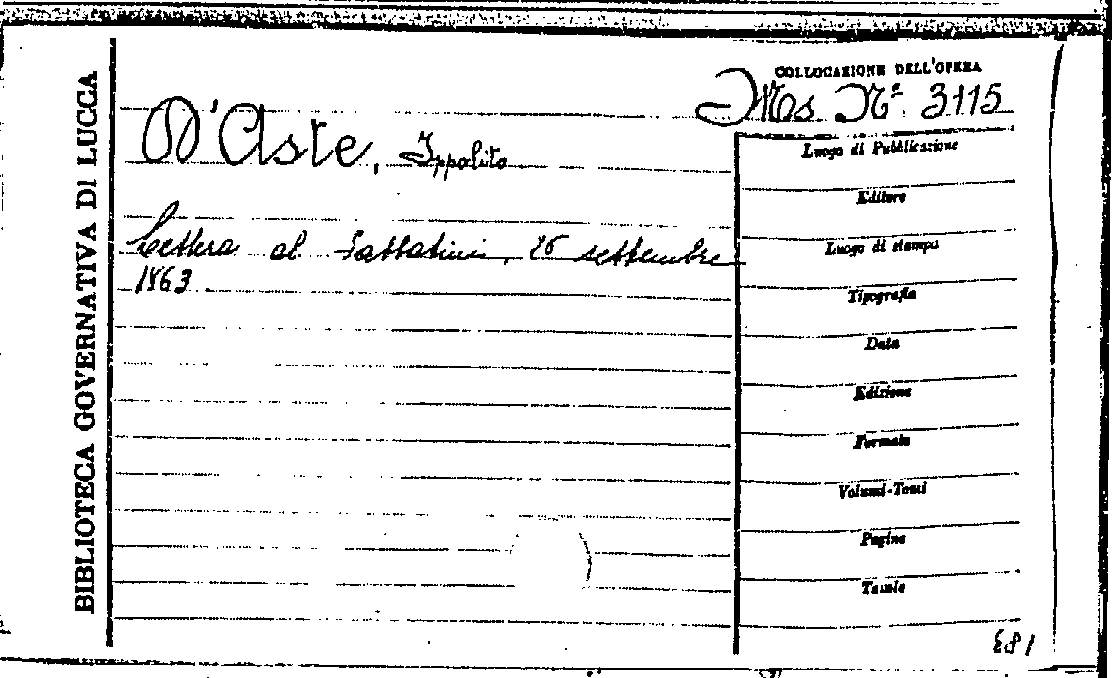 BIBLIOTECA GOVERNATIVA DI LUCCA
COLLOCAZIONE DELL'OPERA
Ms Nº 3115
D'Aste, Ippolito
Lettera al Sabbatini, 26 settembre
1863
Luogo di Pubblicazione
Editore
Luogo di stampa
Tipografia
Data
Edizione
Formato
Volumi-Tomi
Pagine
Tavole